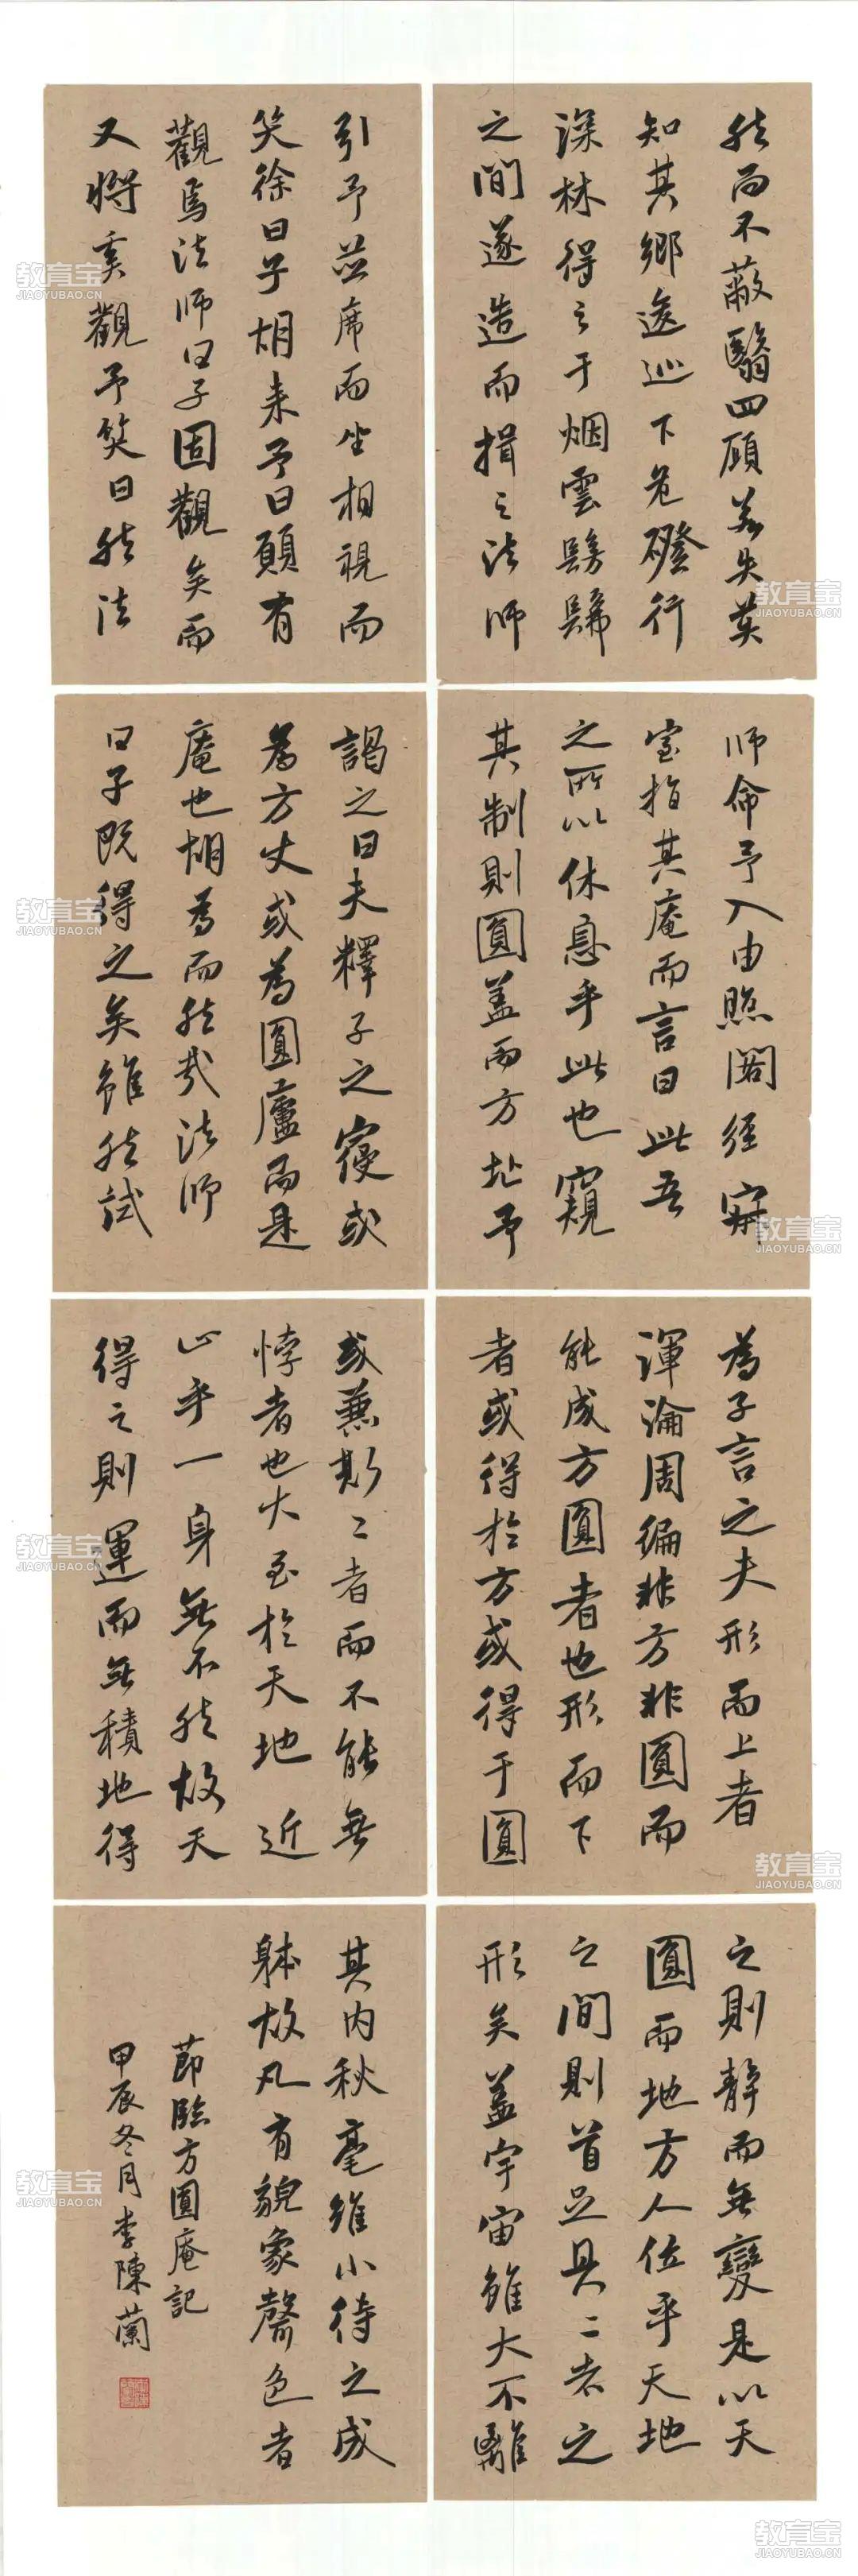 然而不蔽翳四顧若失莫
知其鄉逡巡下危磴行
深林得之于烟雲髣髴
之間遂造而揖之法师
引予並席而坐相視而
笑徐曰子胡来予曰願有
觀焉法师曰子固觀矣而
又將奚觀予笑曰然法
师命予入由照閣經寂
室指其庵而言曰此吾
之所以休息乎此也窺
其制則圓盖而方址予
謁之曰夫釋子之寢或
為方丈或為圓廬而是
庵也胡為而然哉法师
曰子既得之矣雖然試
為子言之夫形而上者
渾淪周徧非方非圓而
能成方圓者也形而下
者或得於方或得于圓
或兼斯二者而不能無
悖者也大至於天地近
止乎一身無不然故天
得之則運而無積地得
之則静而無變是以天
圓而地方人位乎天地
之間則首足具二者之
形矣蓋宇宙雖大不離
其内秋毫雖小待之成
躰故凡有貌象聲色者
節臨方圓庵記
甲辰冬月李陳蘭
教育宝
JIAOYUBAO.CN
教育宝
JIAOYUBAO.CN
教育宝
JIAOYUBAO.CN
教育宝
JIAOYUBAO.CN
教育宝
JIAOYUBAO.CN
教育宝
JIAOYUBAO.CN
教育宝
JIAOYUBAO.CN
教育宝
JIAOYUBAO.CN